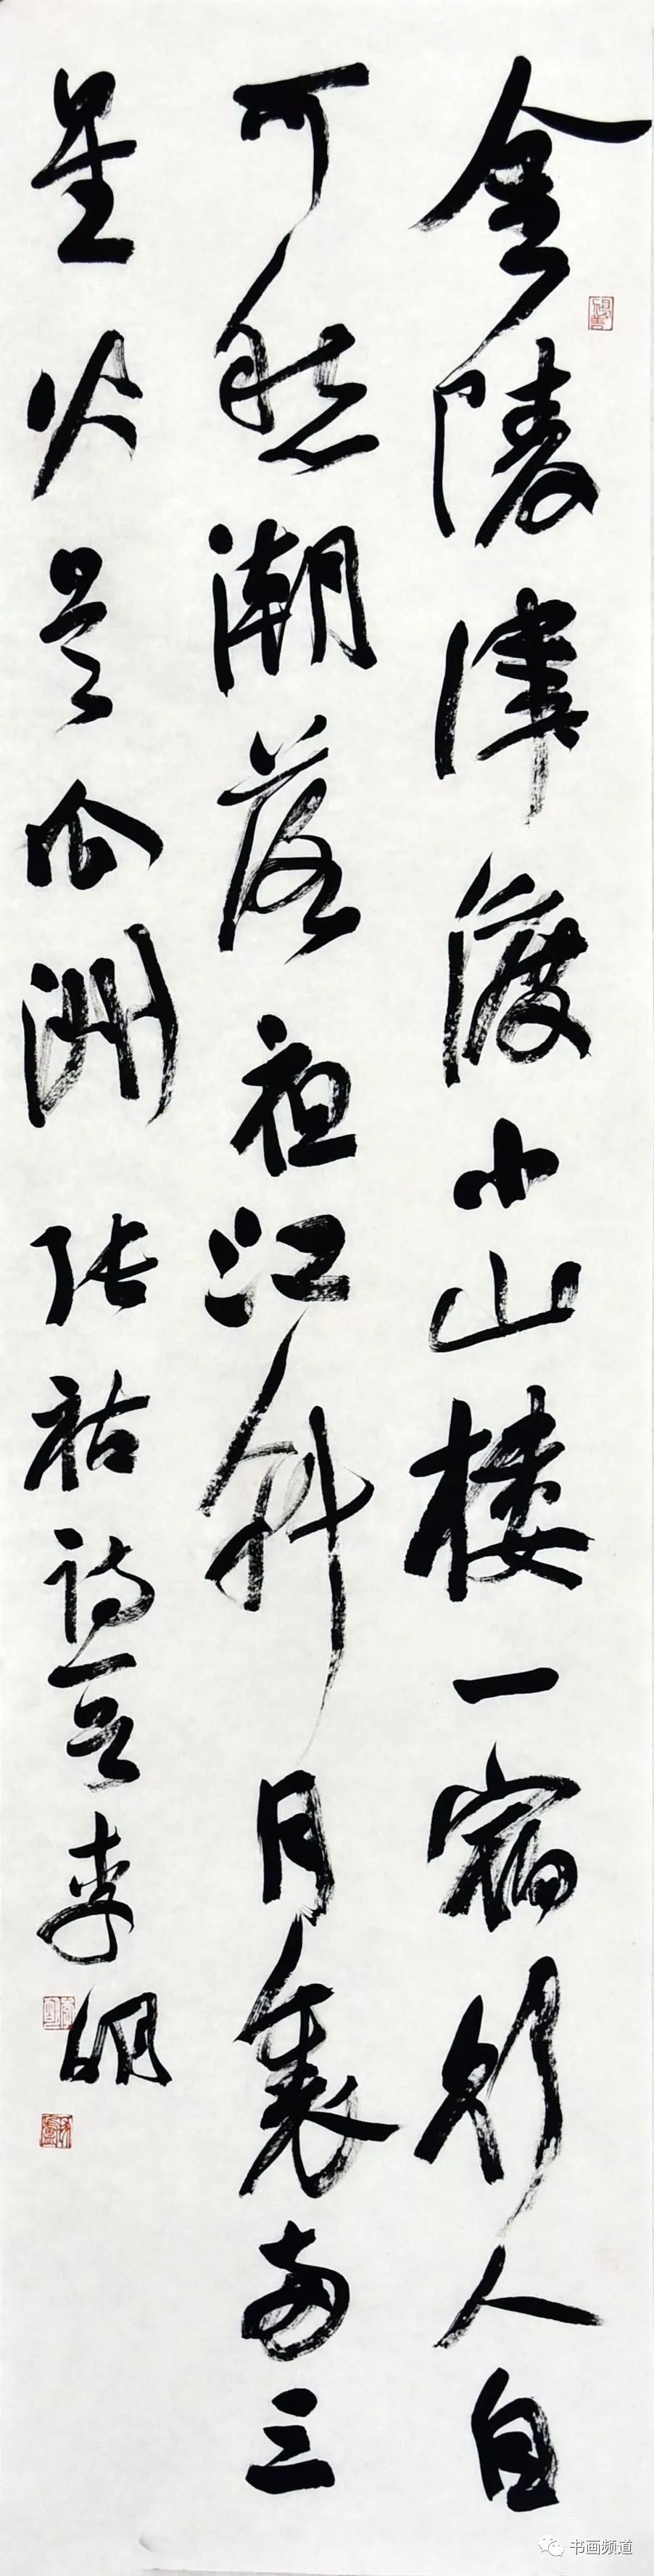 金陵津渡小山楼一宿行人自
可愁潮落夜江斜月裏两三
星火是瓜洲 张祜诗一首 李明
书画频道